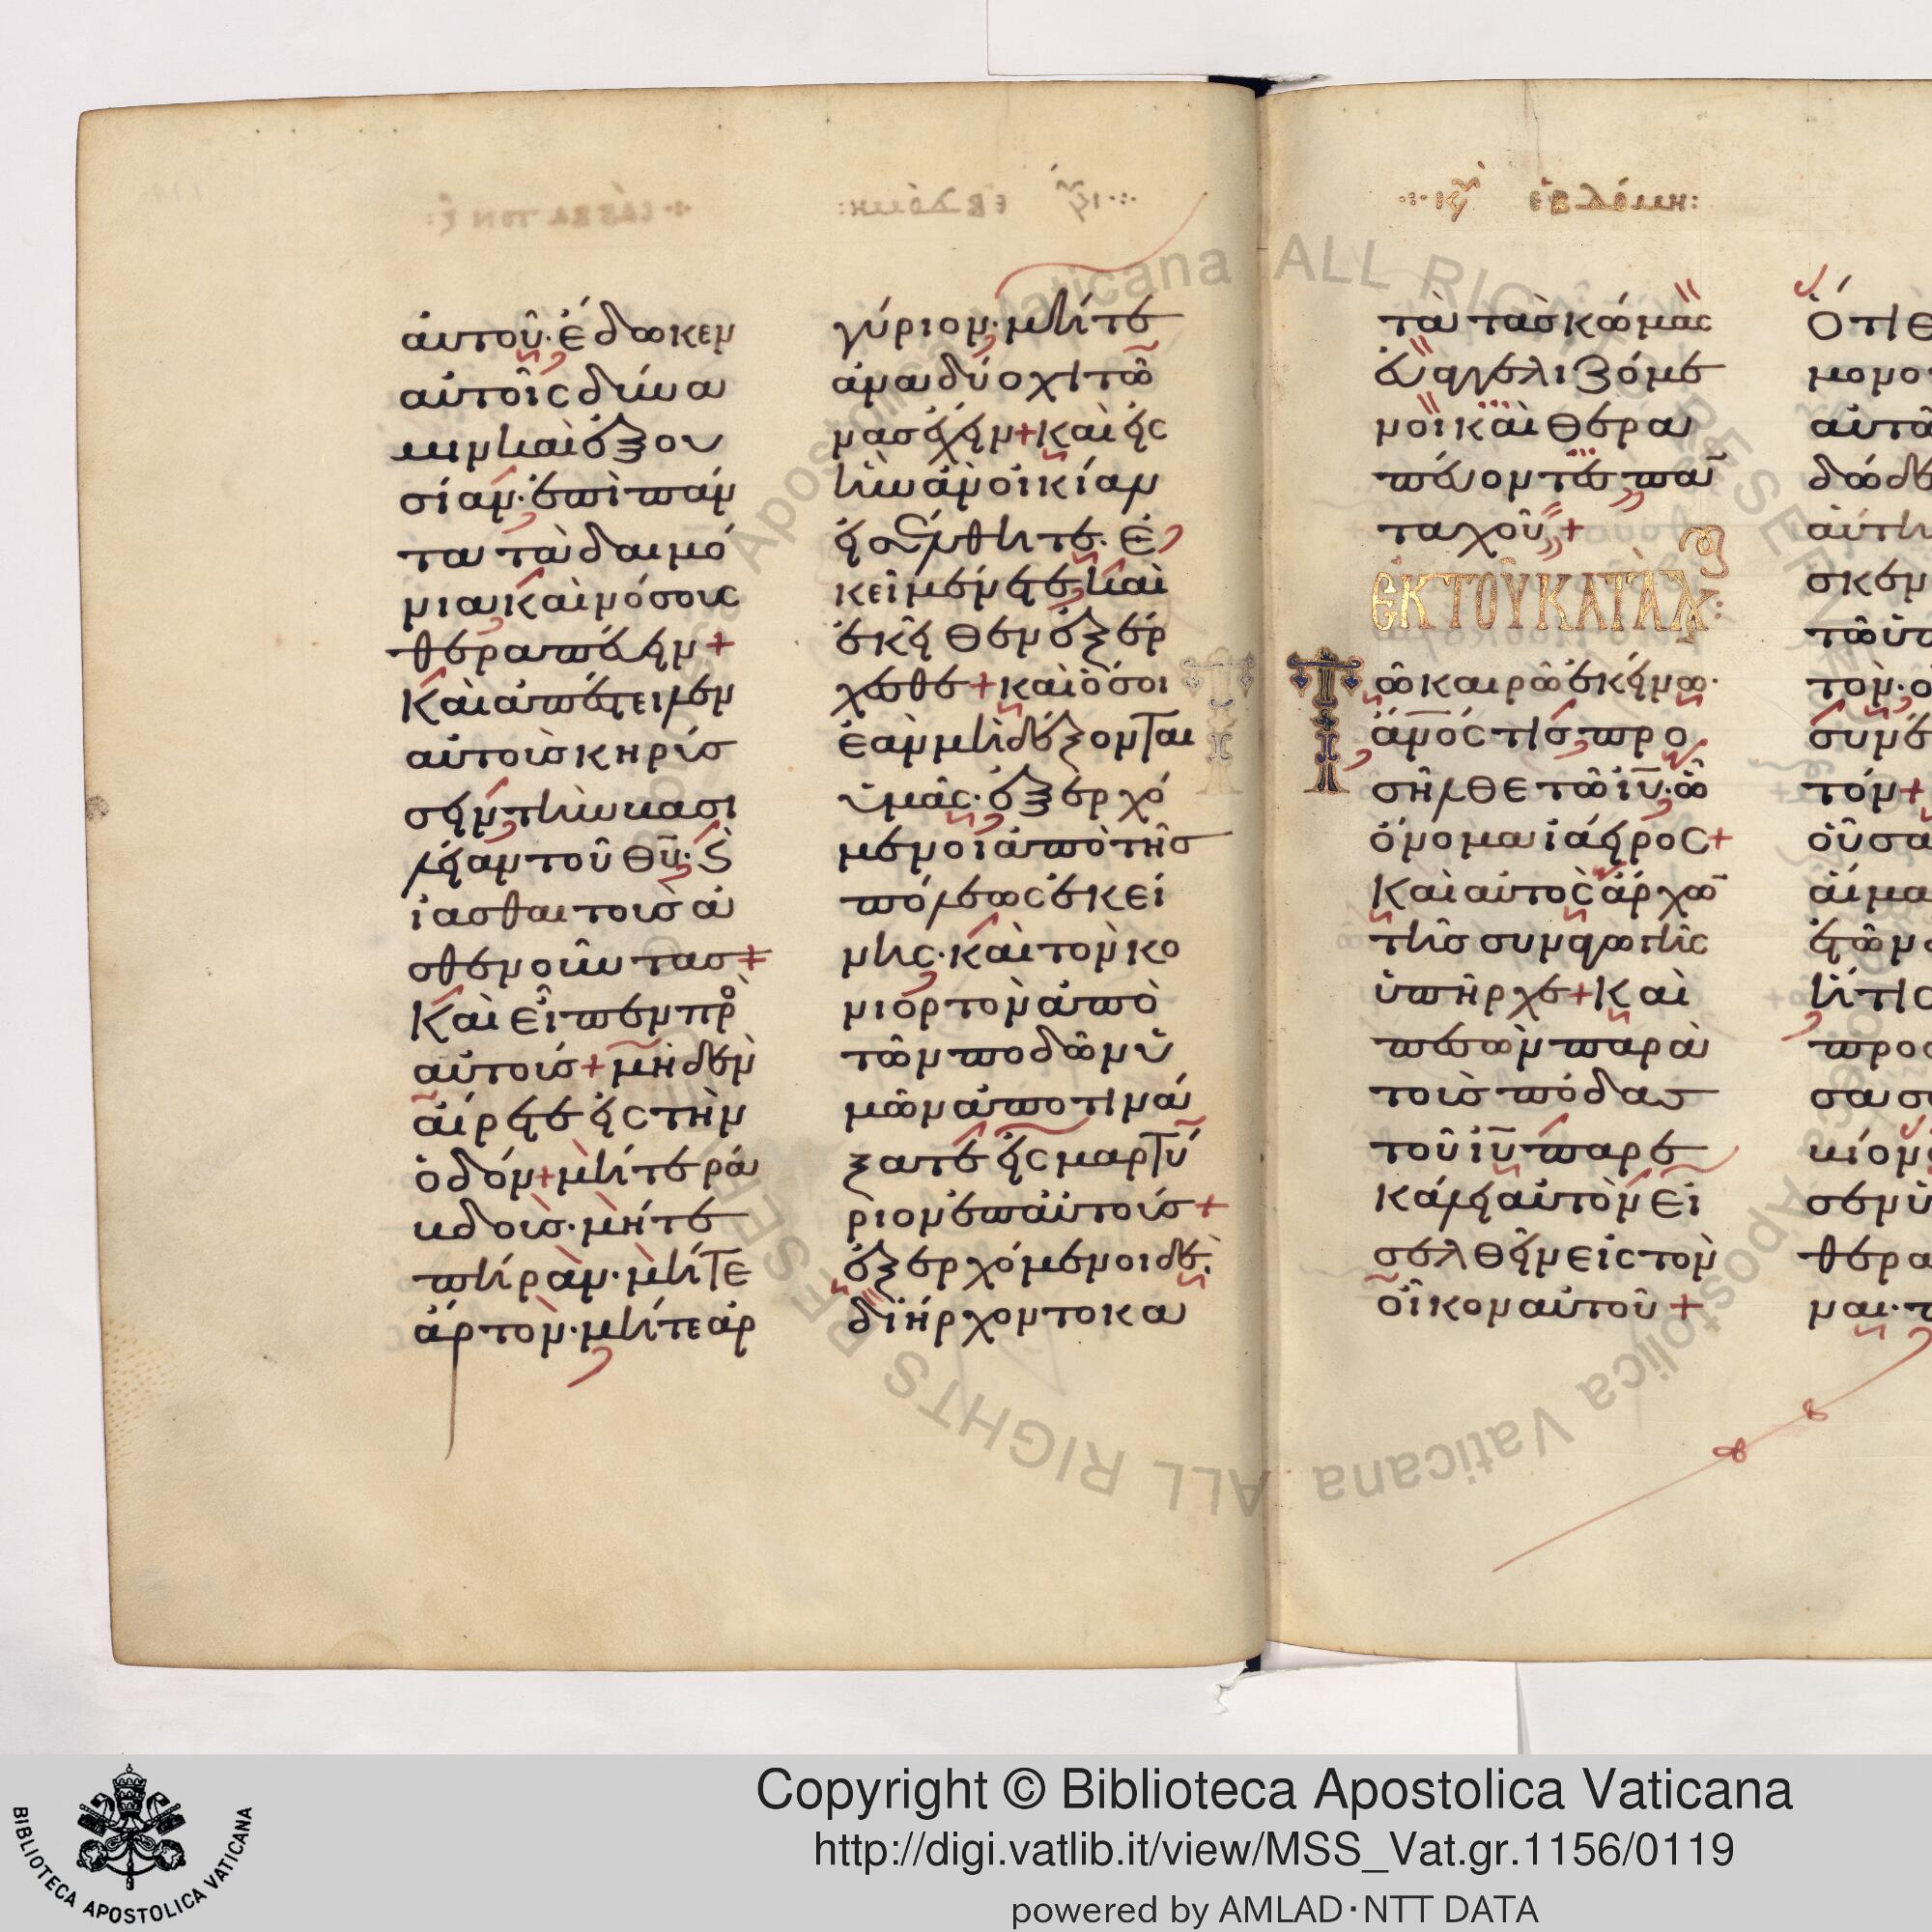 αὐτοῦ· ἔδωκεν
αὐτοῖς δύνα
μιν καὶ ἐξου
σίαν· ἐπὶ πάν
τα τὰ δαιμό
νια καὶ νόσους
θεραπεύειν +
Καὶ ἀπέστειλεν
αὐτοὺς κηρύσ
σειν τὴν βασι
λείαν τοῦ θυ· Ϛ
ἰᾶσθαι τοὺς ἀ
σθενοῦντας +
Καὶ εἶπεν πρὸ
αὐτούς + μηδὲν
αἴρετε εἰς τὴν
ὁδόν + μήτε ρά
βδους· μήτε
πήραν· μήτε
ἄρτον· μήτε ἀρ
γύριον· μήτε
ἀνὰ δύο χιτῶ
νας ἔχειν + καὶ εἰς
ἣν ἂν οἰκίαν
εἰσέλθητε· Ἐ
κεῖ μένετε καὶ
ἐκεῖθεν ἐξέρ
χεσθε + καὶ ὅσοι
ἐὰν μὴ δέξονται
ὑμᾶς· ἐξερχό
μενοι ἀπὸ τῆς
πόλεως ἐκεί
νης· καὶ τὸν κο
νιορτὸν ἀπὸ
τῶν ποδῶν ὑ
μῶν ἀποτινά
ξατε εἰς μαρτύ
ριον ἐπ αὐτούς +
ἐξερχόμενοι δὲ
διήρχοντο κα
··· ιϛ ἑβδόμη:
τὰ τὰς κώμας
εὐαγγελιζόμε
νοι καὶ θερα
πεύοντες παν
ταχοῦ +
ἘΚ ΤΟῦ ΚΑΤᾺ Λ
Τῶ καιρῶ ἐκείνω·
ἀνός τις προ
σῆλθε τῶ ιυ· ὧ
ὄνομα ἰάειρος +
Καὶ αὐτὸς ἄρχω
τῆς συναγωγῆς
ὑπῆρχε + Καὶ
πεσὼν παρὰ
τοὺς πόδας
τοῦ ιυ παρε
κάλει αὐτὸν εἰ
σελθεῖν εἰς τὸν
οἶκον αὐτοῦ +
Copyright © Biblioteca Apostolica Vaticana
http://digi.vatlib.it/view/MSS_Vat.gr.1156/0119
powered by AMLAD·NTT DATA
BIBLIOTECA APOSTOLICA VATICANA